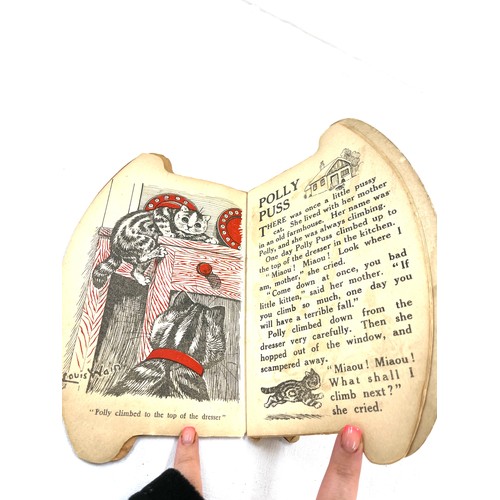 Louis Wain
"Polly climbed to the top of the dresser"
POLLY
PUSS
THERE was once a little pussy
cat. She lived with her mother
in an old farmhouse. Her name was
Polly, and she was always climbing.
One day Polly Puss climbed up to
the top of the dresser in the kitchen.
"Miaou! Miaou! Look where I
am, mother," she cried.
"Come down at once, you bad
little kitten," said her mother. "If
you climb so much, one day you
will have a terrible fall."
Polly climbed down from the
dresser very carefully. Then she
hopped out of the window, and
scampered away.
"Miaou! Miaou!
What shall I
climb next?"
she cried.